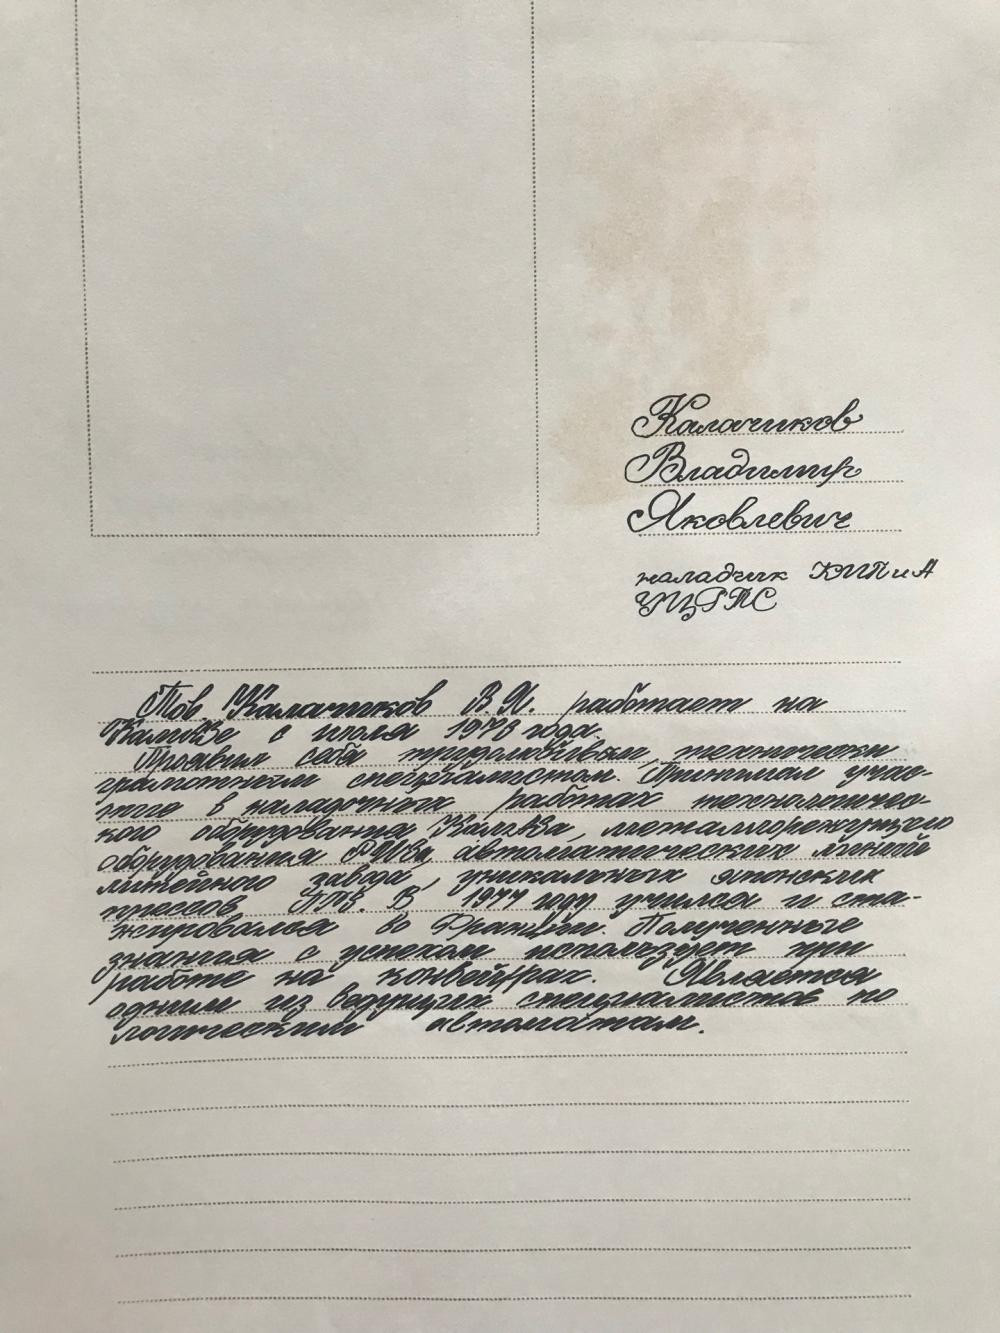 Калачиков
Владимир
Яковлевич
наладчик КИПиА
УЦГПС
Тов Калачиков В.Я. работает на
КамАЗе с июля 1976 года.
Проявил себя трудолюбивым, технически
грамотным специалистом. Принимал учас-
тие в наладочных работах технологичес-
кого оборудования КамАЗа, металлорежущего
оборудования РИЗа, автоматических линий
литейного завода, уникальных японских
прессов В 1977 году учился и ста-
жировался во Франции. Полученные
знания с успехом использует при
работе на конвейерах. Является
одним из ведущих специалистов по
логическим автоматам.